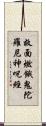 救面燃餓鬼陀羅尼神呪經